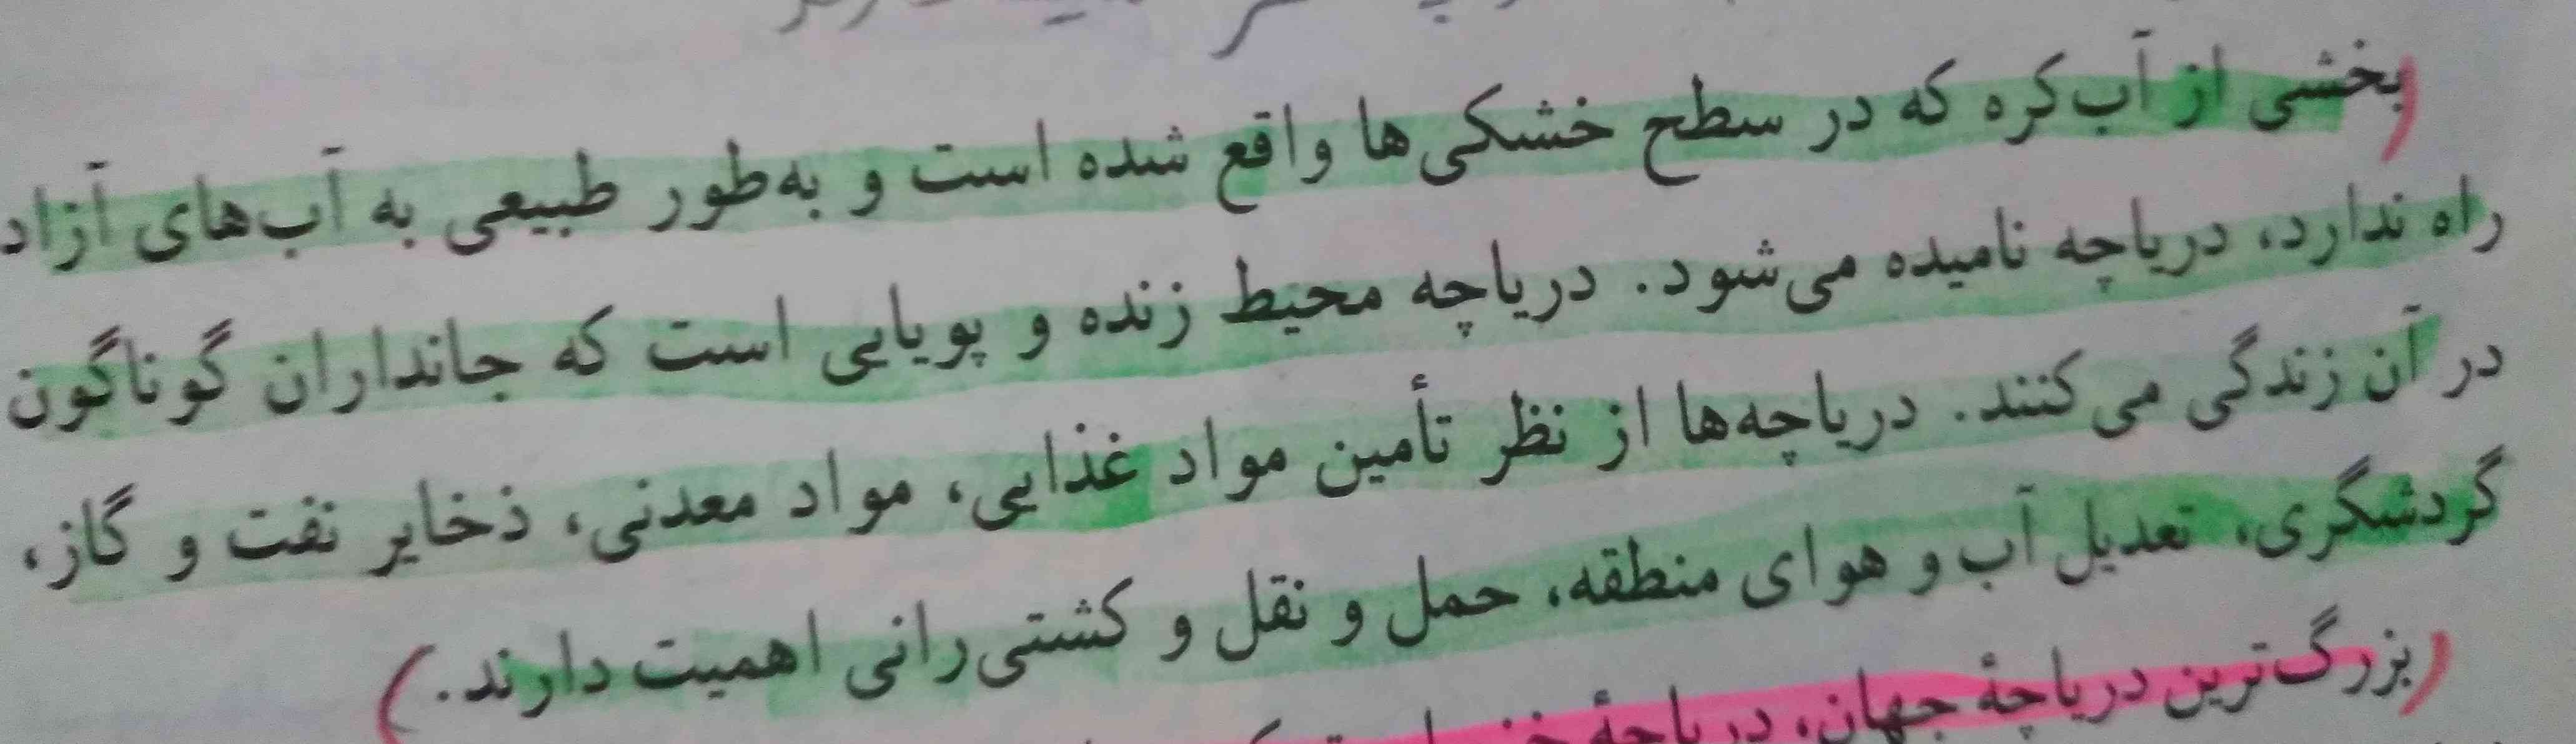 (بخشی از آب‌کره که در سطح خشکی‌ها واقع شده است و به‌طور طبیعی به آب‌های آزاد
راه ندارد، دریاچه نامیده می‌شود. دریاچه محیط زنده و پویایی است که جانداران گوناگون
در آن زندگی می‌کنند. دریاچه‌ها از نظر تأمین مواد غذایی، مواد معدنی، ذخایر نفت و گاز،
گردشگری، تعدیل آب و هوای منطقه، حمل و نقل و کشتی‌رانی اهمیت دارند.)
(بزرگ‌ترین دریاچهٔ جهان، دریاچهٔ